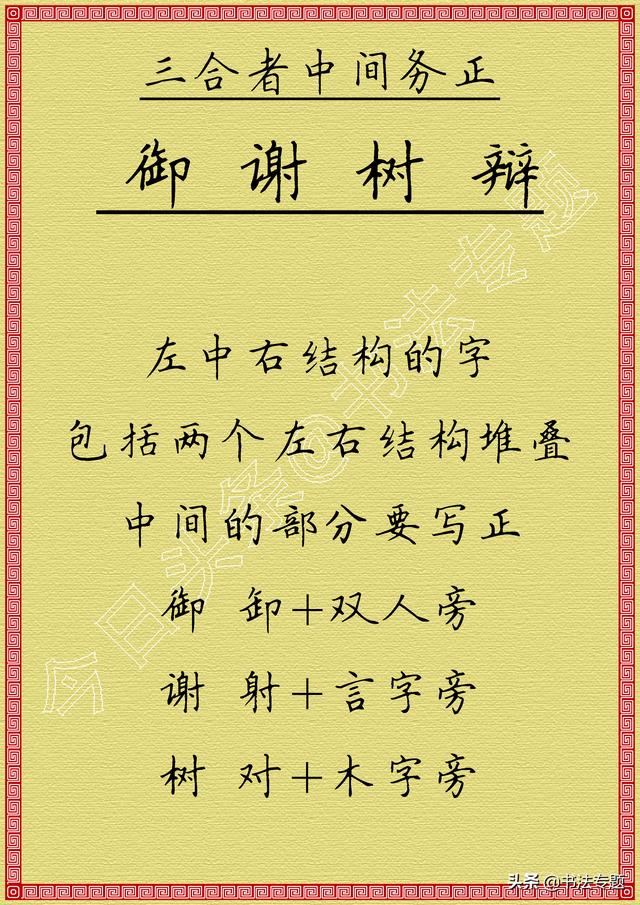 三合者中间务正
御 谢 树 辩
左中右结构的字
包括两个左右结构堆叠
中间的部分要写正
御 卸+双人旁
谢 射+言字旁
树 对+木字旁
今日头条@书法专题
头条@书法专题